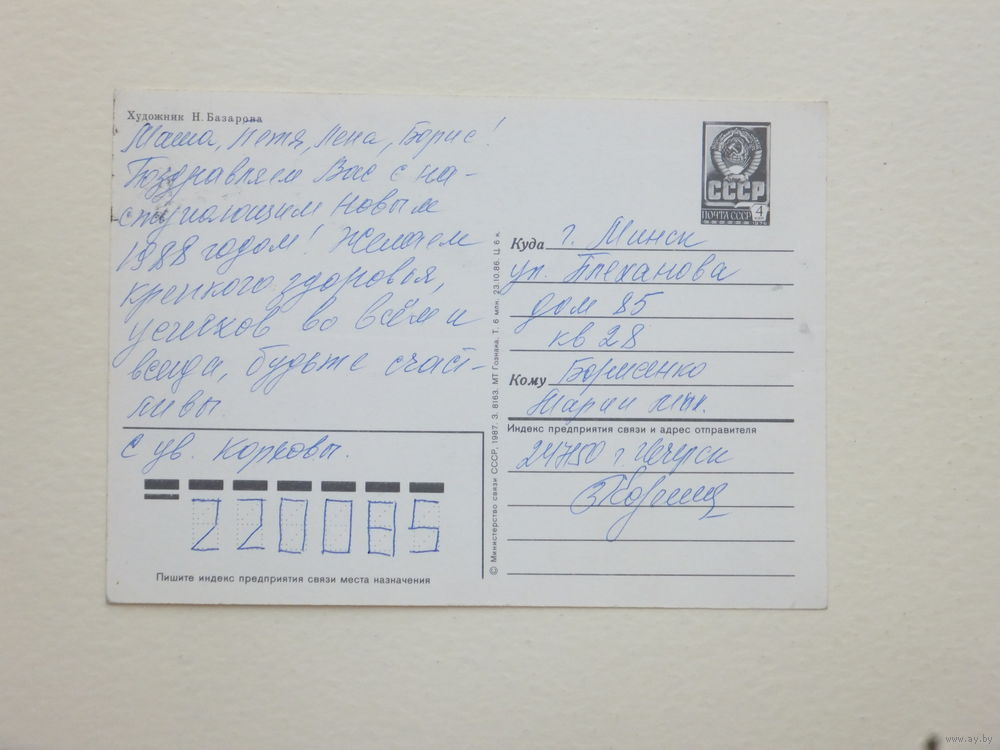 Художник Н. Базарова
Маша, Петя, Лена, Борис!
Поздравляем Вас с на-
ступающим новым
1988 годом! Желаем
крепкого здоровья,
успехов во всём и
всегда, будьте счаст-
ливы.
С ув. Корховы.
220085
Пишите индекс предприятия связи места назначения
© Министерство связи СССР, 1987. З. 8163. МТ Гознака. Т. 6 млн. 23.10.86. Ц. 6 к.
СССР
ПОЧТА СССР 4
Куда г. Минск
ул. Плеханова
дом 85
кв 28
Кому Борисенко
Марии
Индекс предприятия связи и адрес отправителя
247150 г. Чечерск
www.ay.by